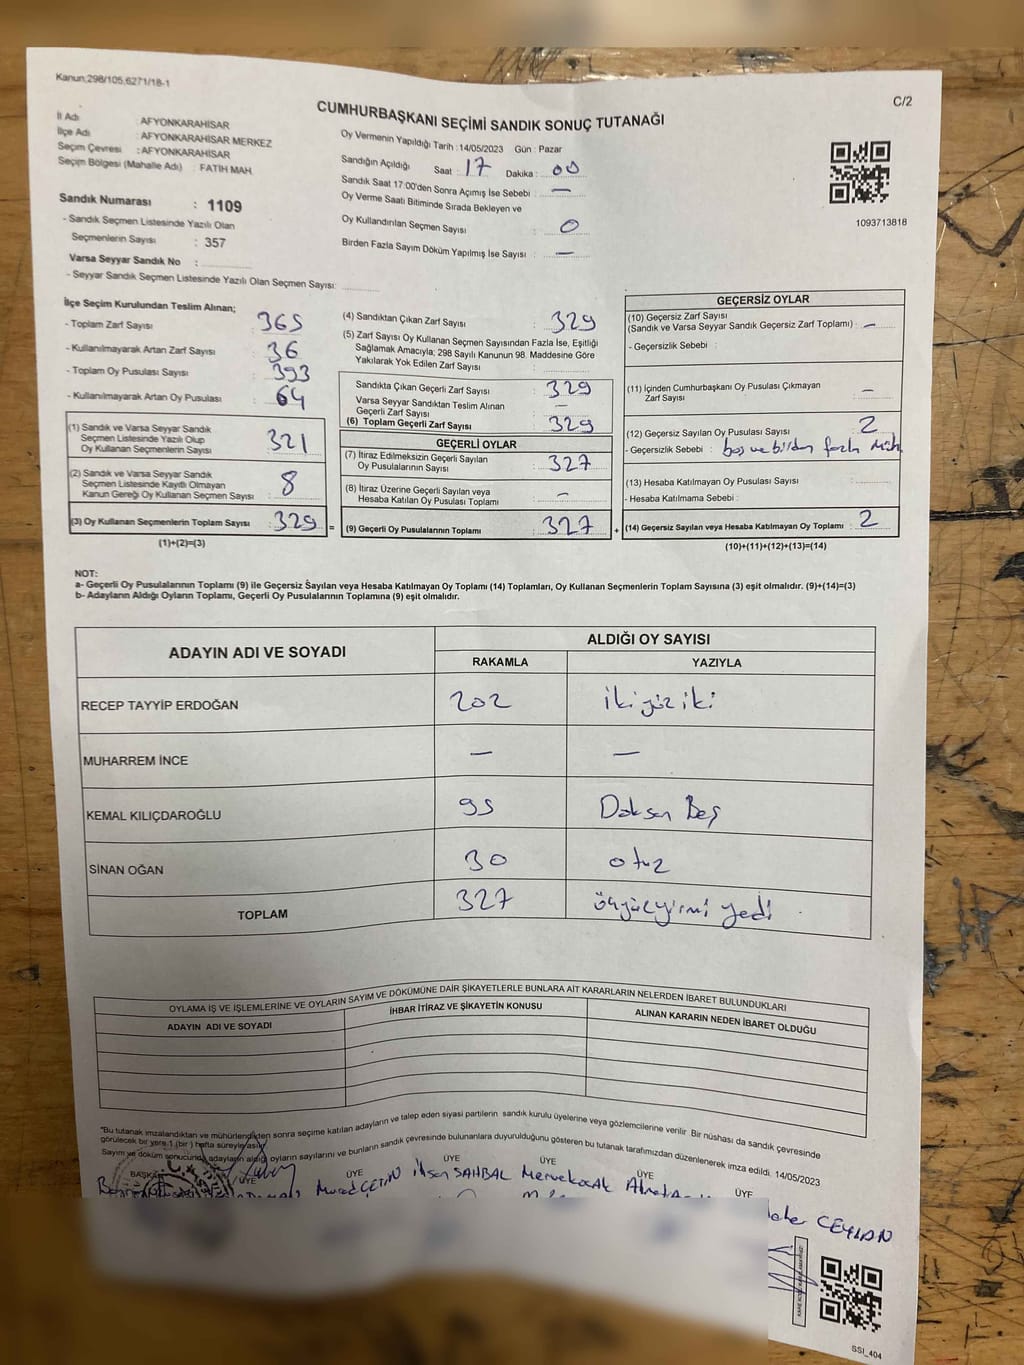 Kanun,298/105,6271/18-1
C/2
CUMHURBAŞKANI SEÇİMİ SANDIK SONUÇ TUTANAĞI
İl Adı : AFYONKARAHİSAR
İlçe Adı : AFYONKARAHİSAR MERKEZ
Seçim Çevresi : AFYONKARAHİSAR
Seçim Bölgesi (Mahalle Adı) : FATİH MAH.
Oy Vermenin Yapıldığı Tarih : 14/05/2023 Gün : Pazar
Sandığın Açıldığı Saat : 17 Dakika : 00
Sandık Saat 17:00'den Sonra Açımış İse Sebebi : —
Oy Verme Saati Bitiminde Sırada Bekleyen ve
Oy Kullandırılan Seçmen Sayısı : 0
Birden Fazla Sayım Döküm Yapılmış İse Sayısı : —
1093713818
Sandık Numarası : 1109
- Sandık Seçmen Listesinde Yazılı Olan
Seçmenlerin Sayısı : 357
Varsa Seyyar Sandık No :
- Seyyar Sandık Seçmen Listesinde Yazılı Olan Seçmen Sayısı:
İlçe Seçim Kurulundan Teslim Alınan;
- Toplam Zarf Sayısı : 365
- Kullanılmayarak Artan Zarf Sayısı : 36
- Toplam Oy Pusulası Sayısı : 393
- Kullanılmayarak Artan Oy Pusulası : 64
(1) Sandık ve Varsa Seyyar Sandık
Seçmen Listesinde Yazılı Olup
Oy Kullanan Seçmenlerin Sayısı : 321
(2) Sandık ve Varsa Seyyar Sandık
Seçmen Listesinde Kayıtlı Olmayan
Kanun Gereği Oy Kullanan Seçmen Sayısı : 8
(3) Oy Kullanan Seçmenlerin Toplam Sayısı : 329 =
(1)+(2)=(3)
(4) Sandıktan Çıkan Zarf Sayısı : 329
(5) Zarf Sayısı Oy Kullanan Seçmen Sayısından Fazla İse, Eşitliği
Sağlamak Amacıyla; 298 Sayılı Kanunun 98. Maddesine Göre
Yakılarak Yok Edilen Zarf Sayısı :
Sandıkta Çıkan Geçerli Zarf Sayısı : 329
Varsa Seyyar Sandıktan Teslim Alınan
Geçerli Zarf Sayısı : —
(6) Toplam Geçerli Zarf Sayısı : 329
GEÇERLİ OYLAR
(7) İtiraz Edilmeksizin Geçerli Sayılan
Oy Pusulalarının Sayısı : 327
(8) İtiraz Üzerine Geçerli Sayılan veya
Hesaba Katılan Oy Pusulası Toplamı : —
(9) Geçerli Oy Pusulalarının Toplamı : 327 +
GEÇERSİZ OYLAR
(10) Geçersiz Zarf Sayısı
(Sandık ve Varsa Seyyar Sandık Geçersiz Zarf Toplamı) : —
- Geçersizlik Sebebi :
(11) İçinden Cumhurbaşkanı Oy Pusulası Çıkmayan
Zarf Sayısı : —
(12) Geçersiz Sayılan Oy Pusulası Sayısı : 2
- Geçersizlik Sebebi : boş ve birden fazla Müh
(13) Hesaba Katılmayan Oy Pusulası Sayısı :
- Hesaba Katılmama Sebebi :
(14) Geçersiz Sayılan veya Hesaba Katılmayan Oy Toplamı : 2
(10)+(11)+(12)+(13)=(14)
NOT:
a- Geçerli Oy Pusulalarının Toplamı (9) ile Geçersiz Sayılan veya Hesaba Katılmayan Oy Toplamı (14) Toplamları, Oy Kullanan Seçmenlerin Toplam Sayısına (3) eşit olmalıdır. (9)+(14)=(3)
b- Adayların Aldığı Oyların Toplamı, Geçerli Oy Pusulalarının Toplamına (9) eşit olmalıdır.
ADAYIN ADI VE SOYADI
ALDIĞI OY SAYISI
RAKAMLA YAZIYLA
RECEP TAYYİP ERDOĞAN 202 iki yüz iki
MUHARREM İNCE — —
KEMAL KILIÇDAROĞLU 95 Doksan Beş
SİNAN OĞAN 30 otuz
TOPLAM 327 üçyüzyirmi yedi
OYLAMA İŞ VE İŞLEMLERİNE VE OYLARIN SAYIM VE DÖKÜMÜNE DAİR ŞİKAYETLERLE BUNLARA AİT KARARLARIN NELERDEN İBARET BULUNDUKLARI
ADAYIN ADI VE SOYADI
İHBAR İTİRAZ VE ŞİKAYETİN KONUSU
ALINAN KARARIN NEDEN İBARET OLDUĞU
"Bu tutanak imzalandıktan ve mühürlendikten sonra seçime katılan adayların ve talep eden siyasi partilerin sandık kurulu üyelerine veya gözlemcilerine verilir. Bir nüshası da sandık çevresinde
görülecek bir yere 1 (bir) hafta süreyle asılır."
Sayım ve döküm sonucunda adayların aldığı oyların sayılarını ve bunların sandık çevresinde bulunanlara duyurulduğunu gösteren bu tutanak tarafımızdan düzenlenerek imza edildi. 14/05/2023
BAŞKAN ÜYE ÜYE ÜYE ÜYE ÜYE ÜYE
Murad ÇETİN İhsan SAHBAL Merve KOÇAK Ahmet
CEYLAN
SSI_404